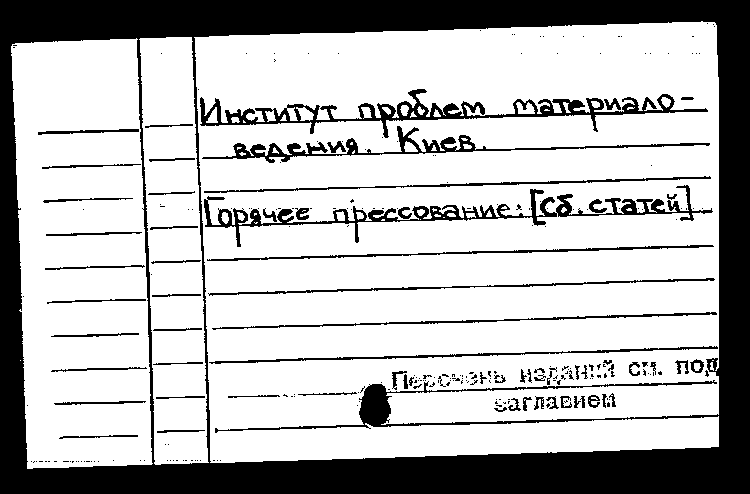 Институт проблем материало-
ведения. Киев.
Горячее прессование: [Сб. статей]
Перечень изданий см. под
заглавием